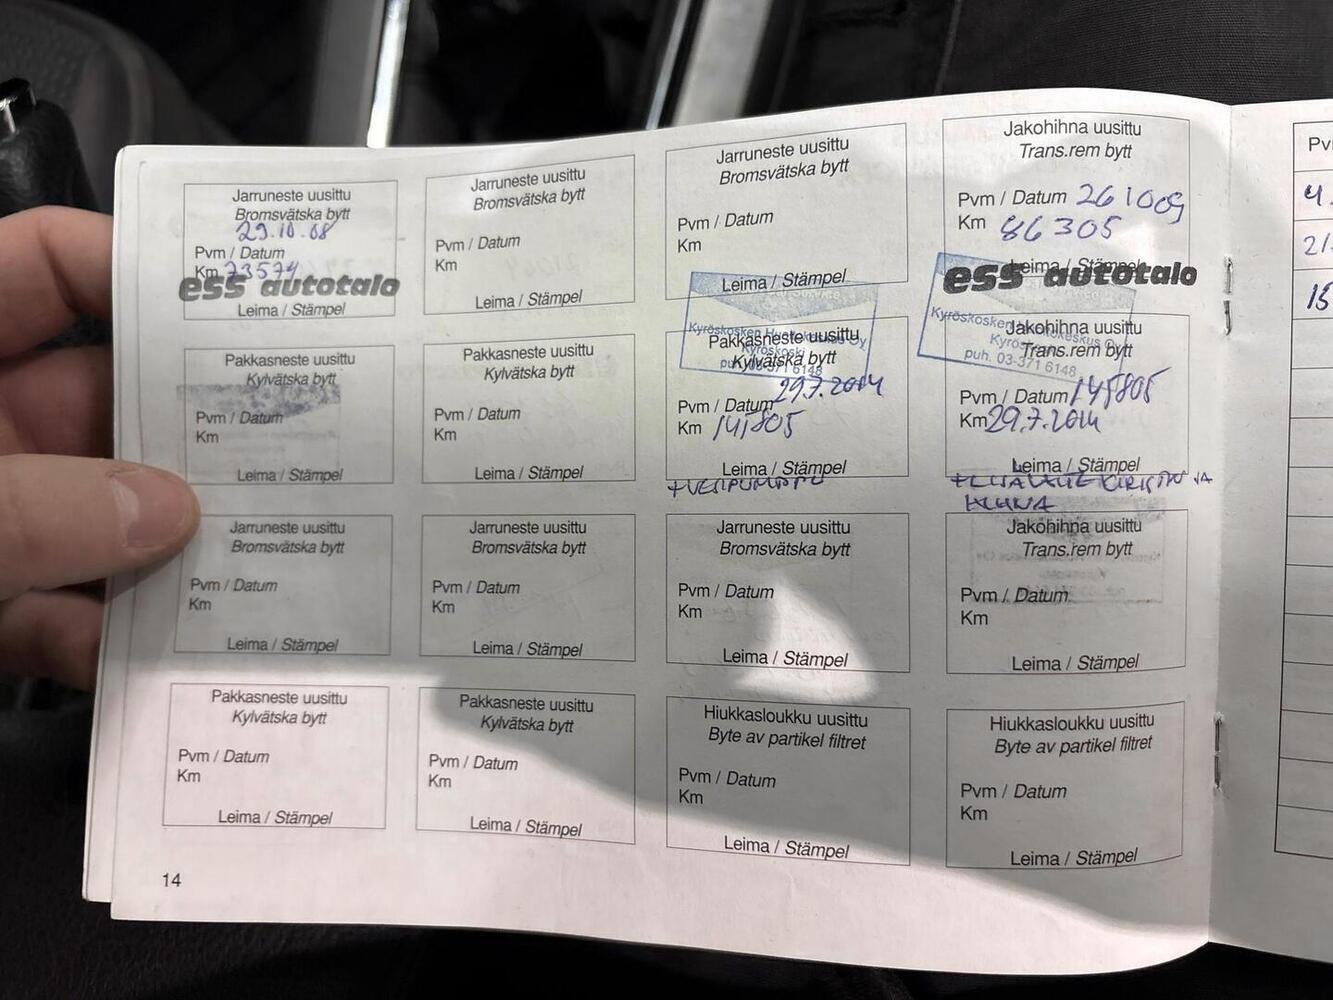 Jarruneste uusittu
Bromsvätska bytt
29.10.08
Pvm / Datum
Km 73574
ess autotalo
Leima / Stämpel
Jarruneste uusittu
Bromsvätska bytt
Pvm / Datum
Km
Leima / Stämpel
Jarruneste uusittu
Bromsvätska bytt
Pvm / Datum
Km
Leima / Stämpel
Jakohihna uusittu
Trans.rem bytt
Pvm / Datum 261009
Km 86305
Leima / Stämpel
ess autotalo
Pakkasneste uusittu
Kylvätska bytt
Pvm / Datum
Km
Leima / Stämpel
Pakkasneste uusittu
Kylvätska bytt
Pvm / Datum
Km
Leima / Stämpel
Kyröskosken Huoltokeskus Oy
Kyröskoski
puh. 03-371 6148
Pakkasneste uusittu
Kylvätska bytt
Pvm / Datum 29.7.2014
Km 141805
Leima / Stämpel
+VESIPUMPPU
Kyröskosken Huoltokeskus Oy
Kyröskoski
puh. 03-371 6148
Jakohihna uusittu
Trans.rem bytt
Pvm / Datum 145805
Km 29.7.2014
Leima / Stämpel
JA
HIHNA
Jarruneste uusittu
Bromsvätska bytt
Pvm / Datum
Km
Leima / Stämpel
Jarruneste uusittu
Bromsvätska bytt
Pvm / Datum
Km
Leima / Stämpel
Jarruneste uusittu
Bromsvätska bytt
Pvm / Datum
Km
Leima / Stämpel
Jakohihna uusittu
Trans.rem bytt
Pvm / Datum
Km
Leima / Stämpel
Pakkasneste uusittu
Kylvätska bytt
Pvm / Datum
Km
Leima / Stämpel
Pakkasneste uusittu
Kylvätska bytt
Pvm / Datum
Km
Leima / Stämpel
Hiukkasloukku uusittu
Byte av partikel filtret
Pvm / Datum
Km
Leima / Stämpel
Hiukkasloukku uusittu
Byte av partikel filtret
Pvm / Datum
Km
Leima / Stämpel
14
Pv
4.
21.
15